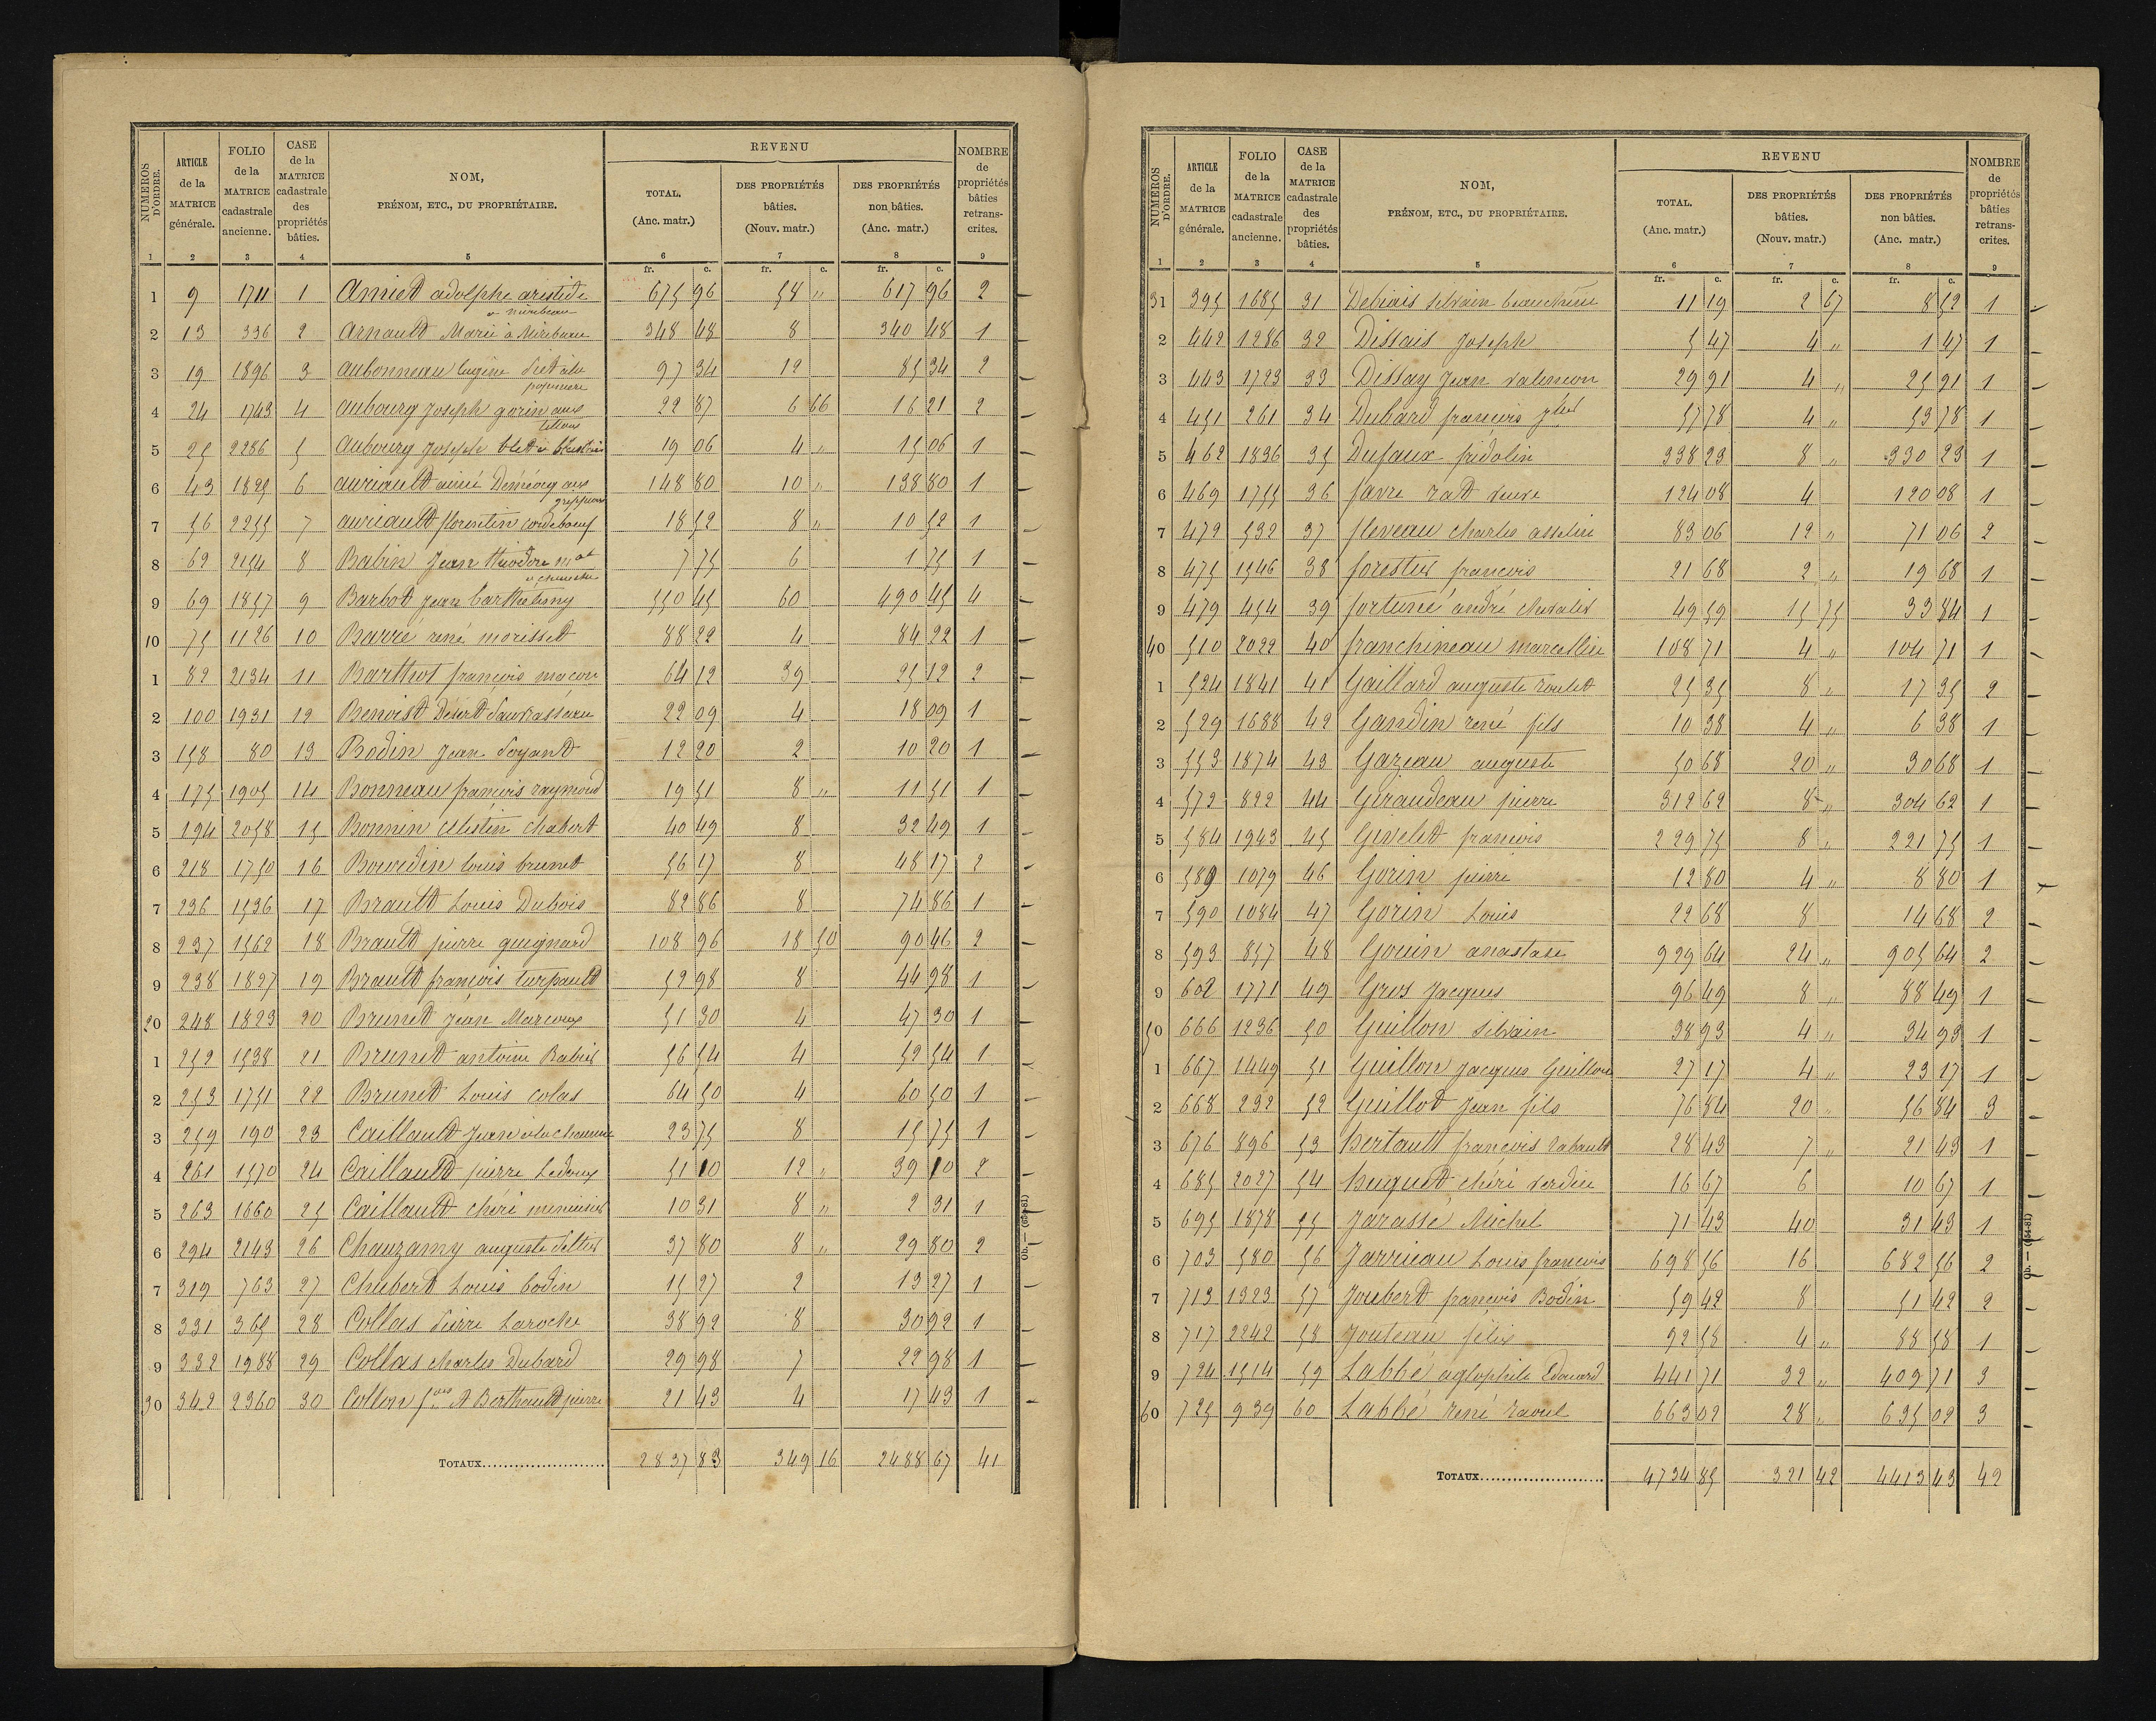 NUMEROS D'ORDRE. ARTICLE de la MATRICE générale. FOLIO de la MATRICE cadastrale ancienne. CASE de la MATRICE cadastrale des propriétés bâties. NOM, PRÉNOM, ETC., DU PROPRIÉTAIRE. REVENU TOTAL. (Anc. matr.) DES PROPRIÉTÉS bâties. (Nouv. matr.) DES PROPRIÉTÉS non bâties. (Anc. matr.) NOMBRE de propriétés bâties retranscrites.
1 2 3 4 5 6 7 8 9
fr. c. fr. c. fr. c.
1 9 1711 1 Amiet adolphe aristide 675 96 58 " 617 96 2
a mirebeau
2 13 336 2 Arnault Marie à Mirebeau 348 48 8 340 48 1
3 19 1896 3 Aubonneau Eugène 97 34 12 85 34 2
4 24 1743 4 Aubourg Joseph gorin aux 22 87 6 66 16 21 2
5 25 2286 5 Aubourg Joseph 19 06 4 " 15 06 1
6 43 1829 6 Auriault aimé Déméocq aux 148 80 10 " 138 80 1
7 56 2255 7 Auriault florentin coudeboeuf 18 52 8 " 10 52 1
8 62 2154 8 Babin Jean théodore 7 75 6 1 75 1
9 69 1857 9 Barbot Jean barthelemy 550 45 60 490 45 4
10 75 1126 10 Barré rené morisset 88 22 4 84 22 1
1 82 2134 11 Barthot françois maçon 64 12 39 25 12 2
2 100 1931 12 Benoist Désert 22 09 4 18 09 1
3 158 80 13 Bodin Jean Sayant 12 20 2 10 20 1
4 175 1905 14 Bonneau francois raymond 19 51 8 " 11 51 1
5 194 2058 15 Bonnin Célestin chabert 40 49 8 32 49 1
6 218 1750 16 Bourdin louis brunet 56 17 8 48 17 2
7 236 1536 17 Brault Louis Dubois 82 86 8 74 86 1
8 237 1562 18 Brault pierre guignard 108 96 18 50 90 46 2
9 238 1827 19 Brault françois turpault 52 98 8 44 98 1
20 248 1823 20 Brunet Jean Marcoux 51 30 4 47 30 1
1 252 1538 21 Brunet antoine Babin 56 54 4 52 54 1
2 253 1751 22 Brunet Louis colas 64 50 4 60 50 1
3 259 190 23 Caillault Jean 23 75 8 15 75 1
4 261 1570 24 Caillault pierre Ledoux 51 10 12 " 39 10 2
5 263 1660 25 Caillault chéri menuisier 10 31 8 " 2 31 1
6 294 2143 26 Chauzamy auguste 37 80 8 " 29 80 2
7 319 763 27 Chubert Louis bodin 15 27 2 13 27 1
8 331 365 28 Collas Pierre Laroche 38 92 8 30 92 1
9 332 1988 29 Collas charles Dubard 29 98 7 22 98 1
30 342 2360 30 Collon et Berthault pierre 21 43 4 17 43 1
TOTAUX 2837 83 349 16 2488 67 41
Ob. — (654-81)
NUMEROS D'ORDRE. ARTICLE de la MATRICE générale. FOLIO de la MATRICE cadastrale ancienne. CASE de la MATRICE cadastrale des propriétés bâties. NOM, PRÉNOM, ETC., DU PROPRIÉTAIRE. REVENU TOTAL. (Anc. matr.) DES PROPRIÉTÉS bâties. (Nouv. matr.) DES PROPRIÉTÉS non bâties. (Anc. matr.) NOMBRE de propriétés bâties retranscrites.
1 2 3 4 5 6 7 8 9
fr. c. fr. c. fr. c.
31 395 1685 31 Debiais Silvain 11 19 2 67 8 52 1
2 442 1286 32 Dissais Joseph 5 47 4 " 1 47 1
3 443 1723 33 Dissay Jean valencon 29 91 4 " 25 91 1
4 451 261 34 Dubard francois 57 78 4 " 53 78 1
5 462 1836 35 Dufaux fridolin 338 23 8 " 330 23 1
6 469 1755 36 favre rat veuve 124 08 4 120 08 1
7 472 532 37 fleveau charles asselin 83 06 12 " 71 06 2
8 475 1546 38 forestier francois 21 68 2 " 19 68 1
9 479 454 39 fortuné andré chevalier 49 59 15 75 33 84 1
40 510 2022 40 franchineau marcellin 108 71 4 " 104 71 1
1 524 1841 41 Gaillard auguste roulet 25 35 8 " 17 35 2
2 529 1688 42 Gandin rené fils 10 38 4 " 6 38 1
3 553 1874 43 Gazeau auguste 50 68 20 " 30 68 1
4 572 822 44 Giraudeau pierre 312 62 8 " 304 62 1
5 584 1943 45 Givelet francois 229 75 8 " 221 75 1
6 589 1079 46 Gorin pierre 12 80 4 " 8 80 1
7 590 1084 47 Gorin Louis 22 68 8 14 68 2
8 593 857 48 Gouin anastase 929 64 24 " 905 64 2
9 602 1771 49 Gros Jacques 96 49 8 " 88 49 1
50 666 1236 50 Guillon Silvain 38 93 4 " 34 93 1
1 667 1449 51 Guillon Jacques Guillon 27 17 4 " 23 17 1
2 668 232 52 Guillot Jean fils 76 84 20 " 56 84 3
3 676 896 53 hertault francois rabault 28 43 7 " 21 43 1
4 685 2027 54 huguet chéri verdin 16 67 6 10 67 1
5 695 1878 55 Jarassé Michel 71 43 40 31 43 1
6 703 580 56 Jarrieau Louis francois 698 56 16 682 56 2
7 713 1323 57 Joubert françois Bodin 59 42 8 51 42 2
8 717 2242 58 Jouteau félix 92 58 4 " 88 58 1
9 724 1514 59 Labbé aglophile Edouard 441 71 32 " 409 71 3
60 725 939 60 Labbé rené raoul 663 02 28 " 635 02 3
TOTAUX 4734 85 321 42 4413 43 42
Ob. — (654-81)